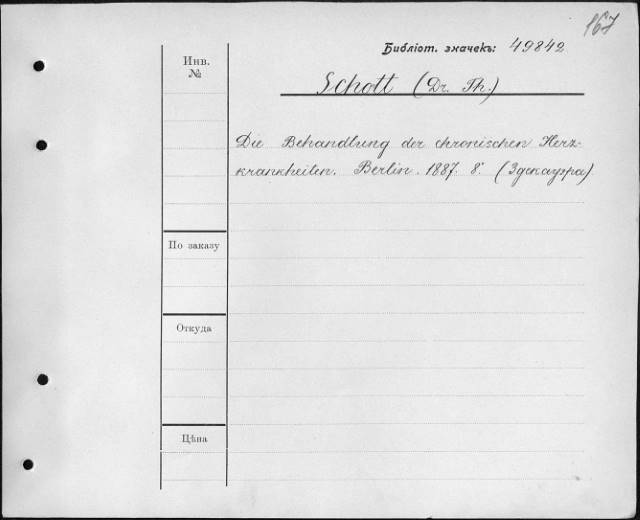 167
Библіот. значекъ: 49842
Инв.
№
Schott (Dr. Th.)
Die Behandlung der chronischen Herz-
krankheiten. Berlin. 1887. 8°. (Здекауэра)
По заказу
Откуда
Цѣна